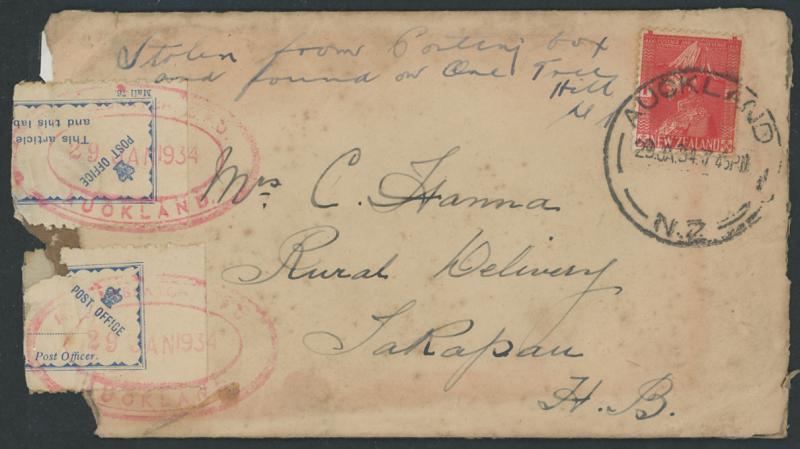 Stolen from Posting box
and found on One Tree
Hill
NEW ZEALAND
AUCKLAND
29 JA 34 7 45 PM
N.Z.
Mail 76.
This article
and this lab
POST OFFICE
29 JAN 1934
AUCKLAND
Mrs C. Hanna
Rural Delivery
Takapau
H.B.
POST OFFICE
Post Officer.
29 JAN 1934
AUCKLAND